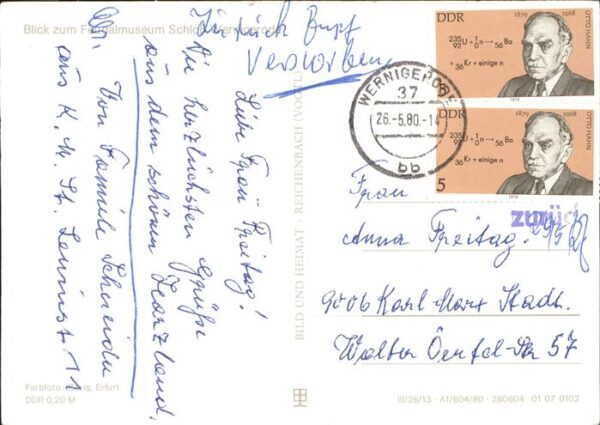 Blick zum Feudalmuseum Schloß Wernigerode
zurück Empf
Verstorben
DDR
1879 1968
OTTO HAHN
235 92 U + 1 0 n → 56 Ba
+ 36 Kr + einige n
1979
DDR
1879 1968
OTTO HAHN
235 92 U + 1 0 n → 56 Ba
+ 36 Kr + einige n
5
1979
WERNIGERODE
37
26.-5.80.-14
bb
zurück
Liebe Frau Freitag!
Die herzlichsten Grüße
aus dem schönen Harzland.
Von Familie Schneider
aus K. M. St. Leninstr. 11
BILD UND HEIMAT REICHENBACH (VOGTL
Frau
Anna Freitag.
9006 Karl-Marx Stadt.
Walter Oertel-Str 57
Farbfoto: , Erfurt
DDR 0,20 M
III/26/13 · A1/604/80 · 280604 01 07 0102